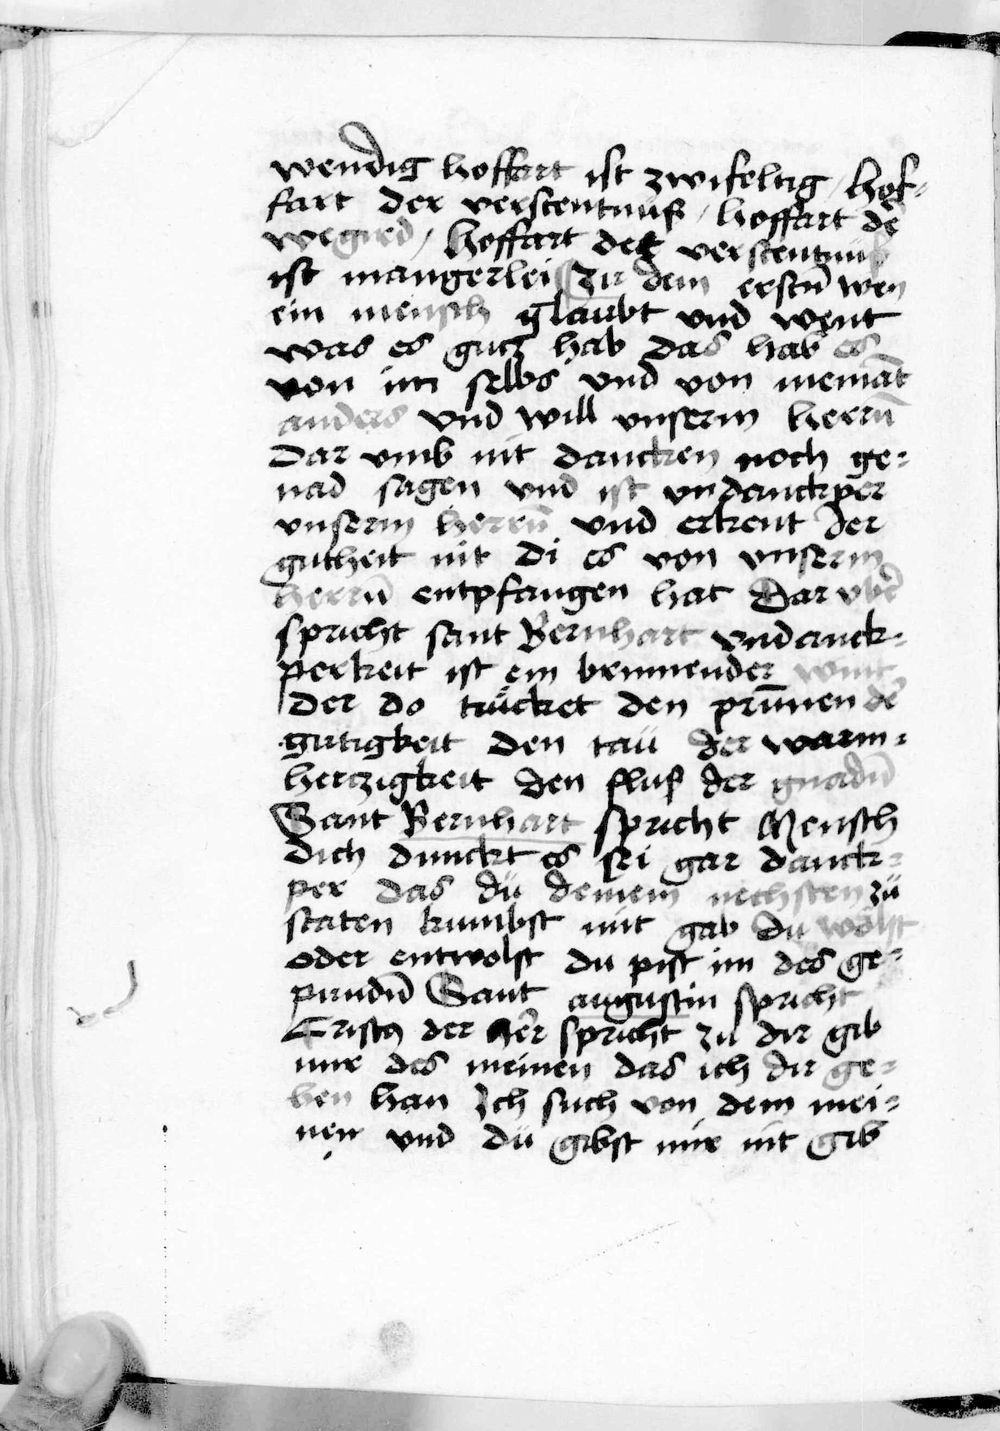 wendig hoffart ist zwifeltig / Hof-
fart der verstentnüß / hoffart de͛
wegird / Hoffart der verstentnüß
ist mangerlei zü dem erstn̄ wen
ein mensch glaubt vnd went
was es gutz hab das hab es
von im selbs vnd von niemāt
anders vnd will vnserm herrn̄
Dar vmb nit dancken noch ge-
nad sagen vnd ist vndanckper
vnserm herrn̄ vnd erkent der
gutheit nit di es von vnserm
herrn̄ entpfangen hat Dar vbe͛
spricht sant Bernhart vndanck-
perkeit ist ein brinnender wint
der do trücket den prūnen de͛
gutigkeit den taü der warm-
hertzigkeit den fluß der gnadn̄
Sant Bernhart spricht Mensch
dich dünckt es sei gar danck-
per das dü deinem nechsten zü
staten kumbst mit gab du wolst
oder entwolst du pist im des ge-
pundn̄ Sant augustin spricht
Cristus der her spricht zü dir gib
mir des meinen das ich dir ge-
ben han Ich such von dem mei-
nen vnd dü gibst mir nit gib